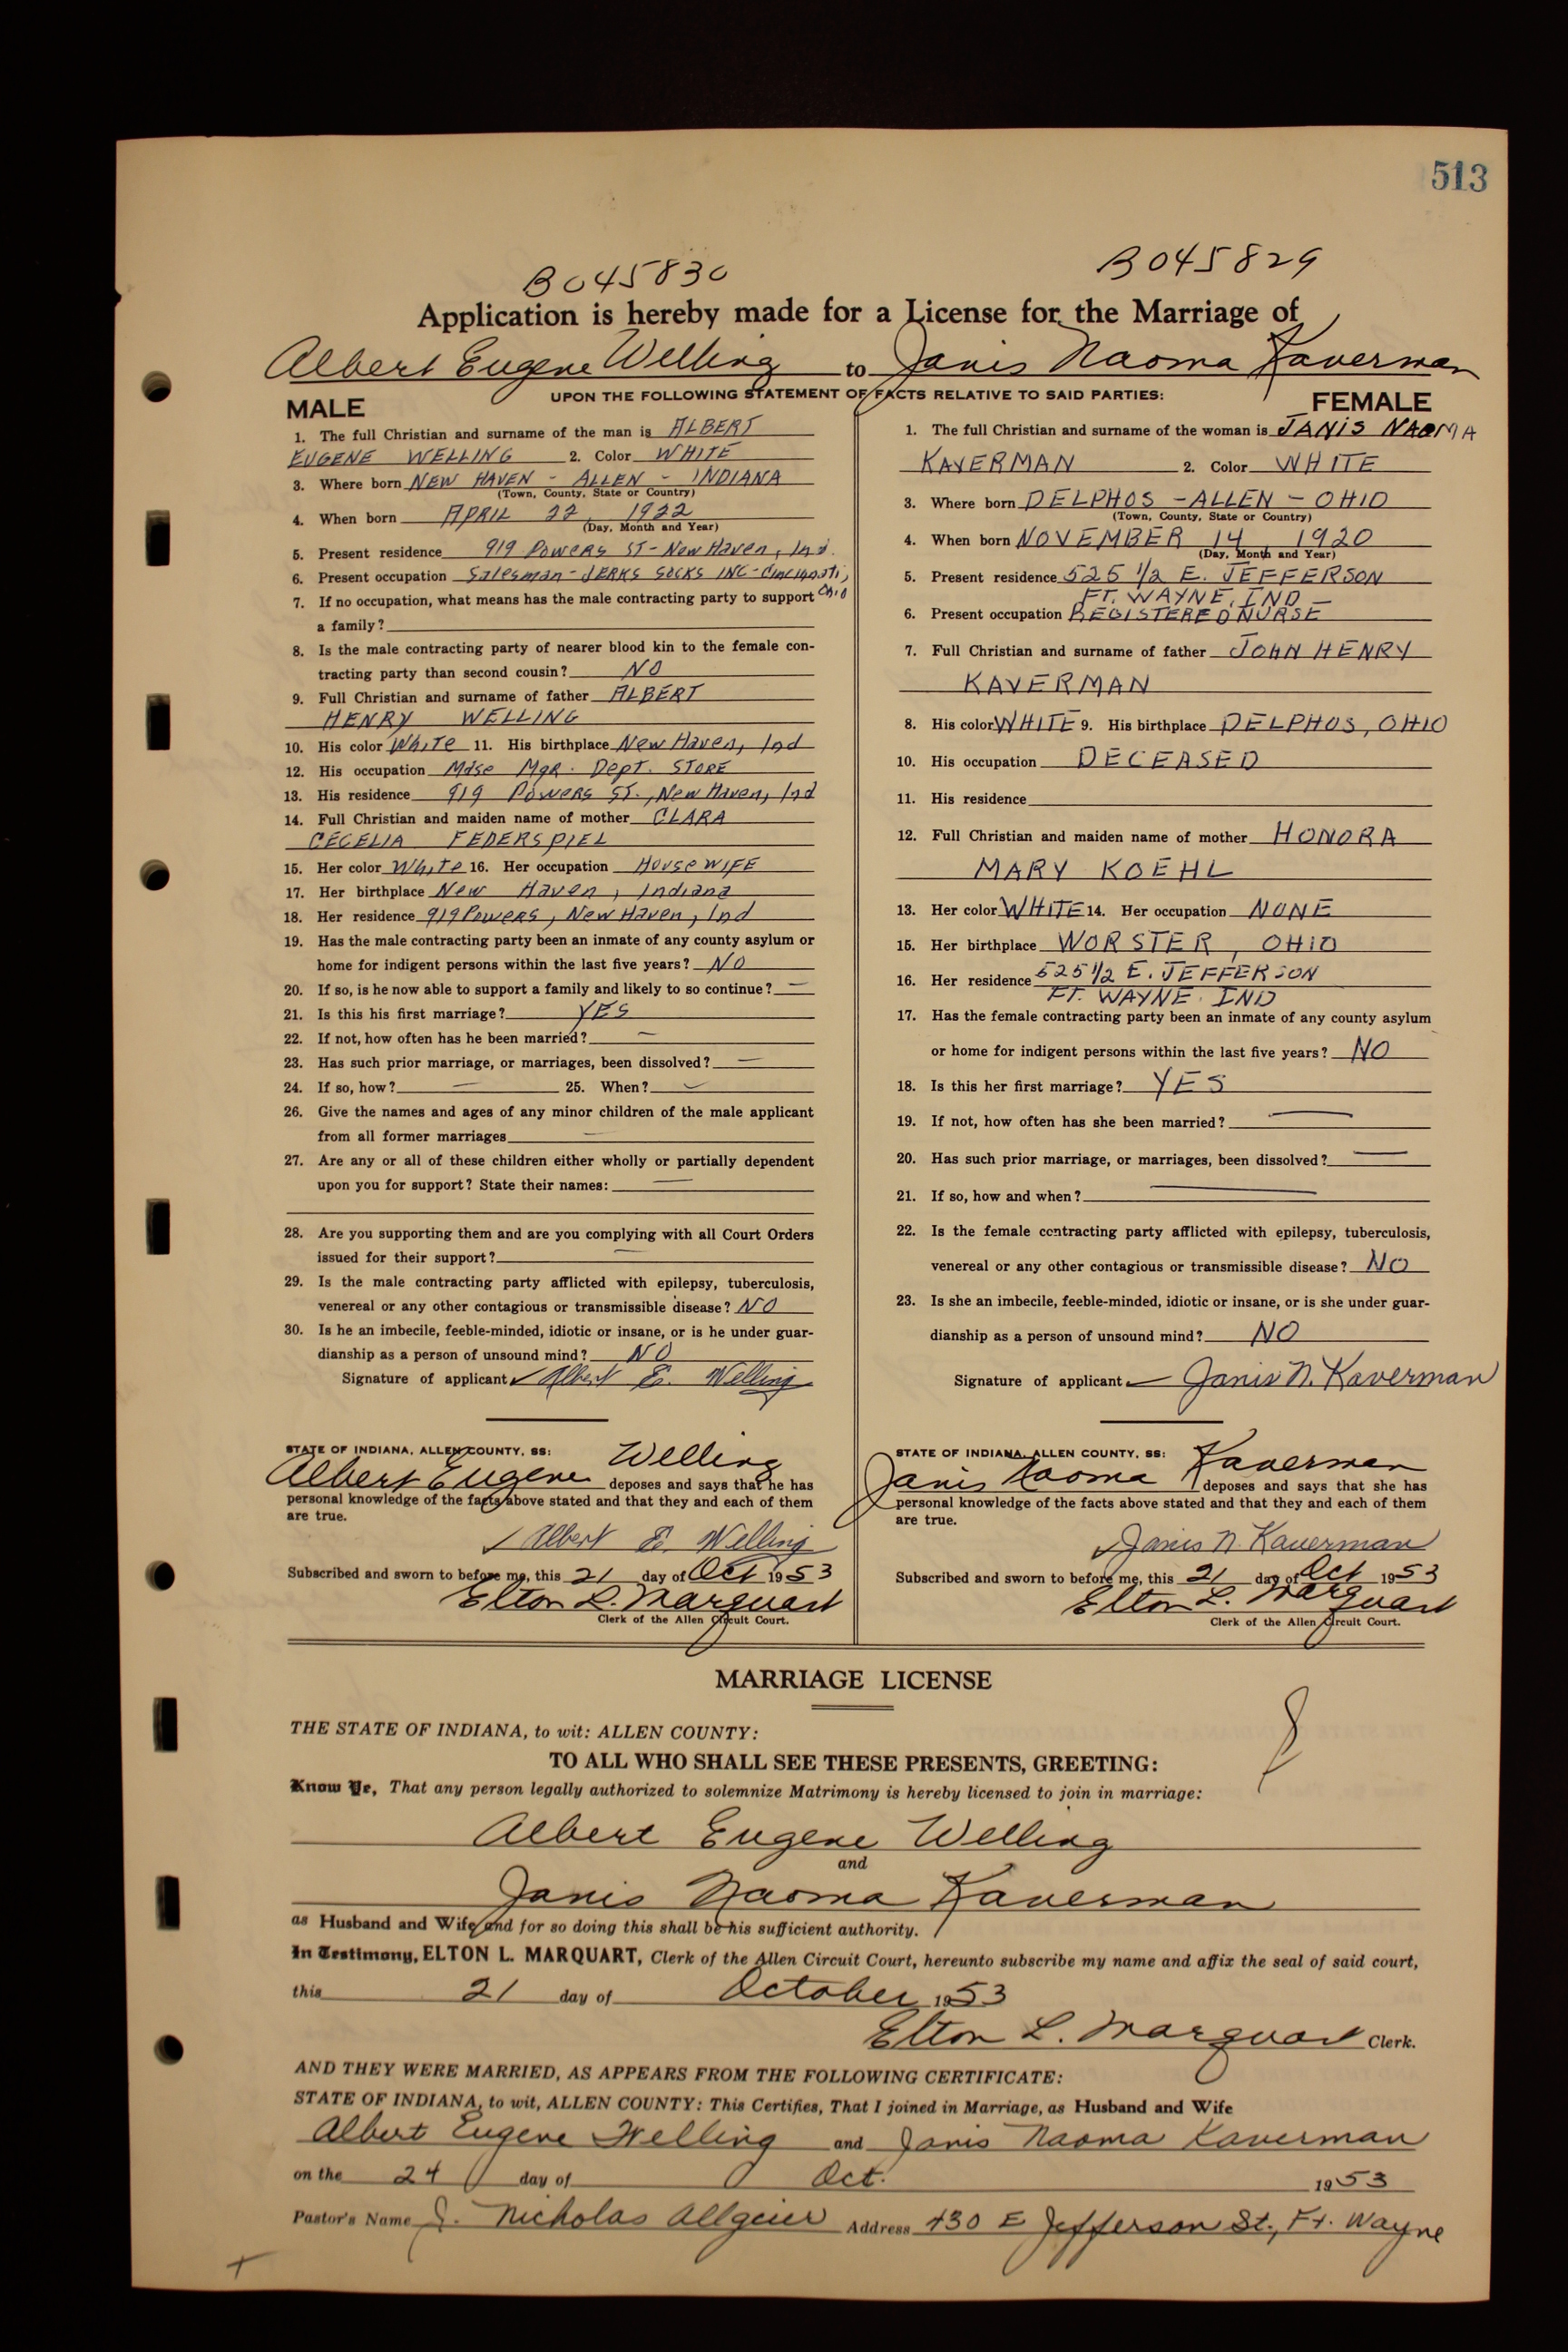 513
B045830
B045829
Application is hereby made for a License for the Marriage of
Albert Eugene Welling to Janis Naoma Kaverman
UPON THE FOLLOWING STATEMENT OF FACTS RELATIVE TO SAID PARTIES:
MALE
1. The full Christian and surname of the man is ALBERT
EUGENE WELLING 2. Color WHITE
3. Where born NEW HAVEN - ALLEN - INDIANA
(Town, County, State or Country)
4. When born APRIL 22, 1922
(Day, Month and Year)
5. Present residence 919 Powers ST - New Haven, Ind.
6. Present occupation Salesman - JERKS SOCKS INC - Cincinnati,
Ohio
7. If no occupation, what means has the male contracting party to support
a family?
8. Is the male contracting party of nearer blood kin to the female con-
tracting party than second cousin? NO
9. Full Christian and surname of father ALBERT
HENRY WELLING
10. His color White 11. His birthplace New Haven, Ind
12. His occupation Mdse Mgr. Dept. STORE
13. His residence 919 Powers ST., New Haven, Ind
14. Full Christian and maiden name of mother CLARA
CECELIA FEDERSPIEL
15. Her color White 16. Her occupation HouseWIFE
17. Her birthplace New Haven, Indiana
18. Her residence 919 Powers, New Haven, Ind
19. Has the male contracting party been an inmate of any county asylum or
home for indigent persons within the last five years? NO
20. If so, is he now able to support a family and likely to so continue? —
21. Is this his first marriage? YES
22. If not, how often has he been married? —
23. Has such prior marriage, or marriages, been dissolved? —
24. If so, how? — 25. When? —
26. Give the names and ages of any minor children of the male applicant
from all former marriages —
27. Are any or all of these children either wholly or partially dependent
upon you for support? State their names: —
28. Are you supporting them and are you complying with all Court Orders
issued for their support? —
29. Is the male contracting party afflicted with epilepsy, tuberculosis,
venereal or any other contagious or transmissible disease? NO
30. Is he an imbecile, feeble-minded, idiotic or insane, or is he under guar-
dianship as a person of unsound mind? NO
Signature of applicant Albert E. Welling
STATE OF INDIANA, ALLEN COUNTY, SS: Welling
Albert Eugene deposes and says that he has
personal knowledge of the facts above stated and that they and each of them
are true.
Albert E. Welling
Subscribed and sworn to before me, this 21 day of Oct 1953
Elton L. Marquart
Clerk of the Allen Circuit Court.
FEMALE
1. The full Christian and surname of the woman is JANIS NAOMA
KAVERMAN 2. Color WHITE
3. Where born DELPHOS - ALLEN - OHIO
(Town, County, State or Country)
4. When born NOVEMBER 14, 1920
(Day, Month and Year)
5. Present residence 525 1/2 E. JEFFERSON
FT. WAYNE, IND
6. Present occupation REGISTERED NURSE
7. Full Christian and surname of father JOHN HENRY
KAVERMAN
8. His color WHITE 9. His birthplace DELPHOS, OHIO
10. His occupation DECEASED
11. His residence
12. Full Christian and maiden name of mother HONORA
MARY KOEHL
13. Her color WHITE 14. Her occupation NONE
15. Her birthplace WORSTER, OHIO
16. Her residence 525 1/2 E. JEFFERSON
FT. WAYNE. IND
17. Has the female contracting party been an inmate of any county asylum
or home for indigent persons within the last five years? NO
18. Is this her first marriage? YES
19. If not, how often has she been married? —
20. Has such prior marriage, or marriages, been dissolved? —
21. If so, how and when? —
22. Is the female contracting party afflicted with epilepsy, tuberculosis,
venereal or any other contagious or transmissible disease? NO
23. Is she an imbecile, feeble-minded, idiotic or insane, or is she under guar-
dianship as a person of unsound mind? NO
Signature of applicant Janis N. Kaverman
STATE OF INDIANA, ALLEN COUNTY, SS: Kaverman
Janis Naoma deposes and says that she has
personal knowledge of the facts above stated and that they and each of them
are true.
Janis N. Kaverman
Subscribed and sworn to before me, this 21 day of Oct 1953
Elton L. Marquart
Clerk of the Allen Circuit Court.
MARRIAGE LICENSE
THE STATE OF INDIANA, to wit: ALLEN COUNTY:
TO ALL WHO SHALL SEE THESE PRESENTS, GREETING:
Know Ye, That any person legally authorized to solemnize Matrimony is hereby licensed to join in marriage:
Albert Eugene Welling
and
Janis Naoma Kaverman
as Husband and Wife and for so doing this shall be his sufficient authority.
In Testimony, ELTON L. MARQUART, Clerk of the Allen Circuit Court, hereunto subscribe my name and affix the seal of said court,
this 21 day of October 1953
Elton L. Marquart Clerk.
AND THEY WERE MARRIED, AS APPEARS FROM THE FOLLOWING CERTIFICATE:
STATE OF INDIANA, to wit, ALLEN COUNTY: This Certifies, That I joined in Marriage, as Husband and Wife
Albert Eugene Welling and Janis Naoma Kaverman
on the 24 day of Oct. 1953
Pastor's Name J. Nicholas Allgeier Address 430 E Jefferson St., Ft. Wayne